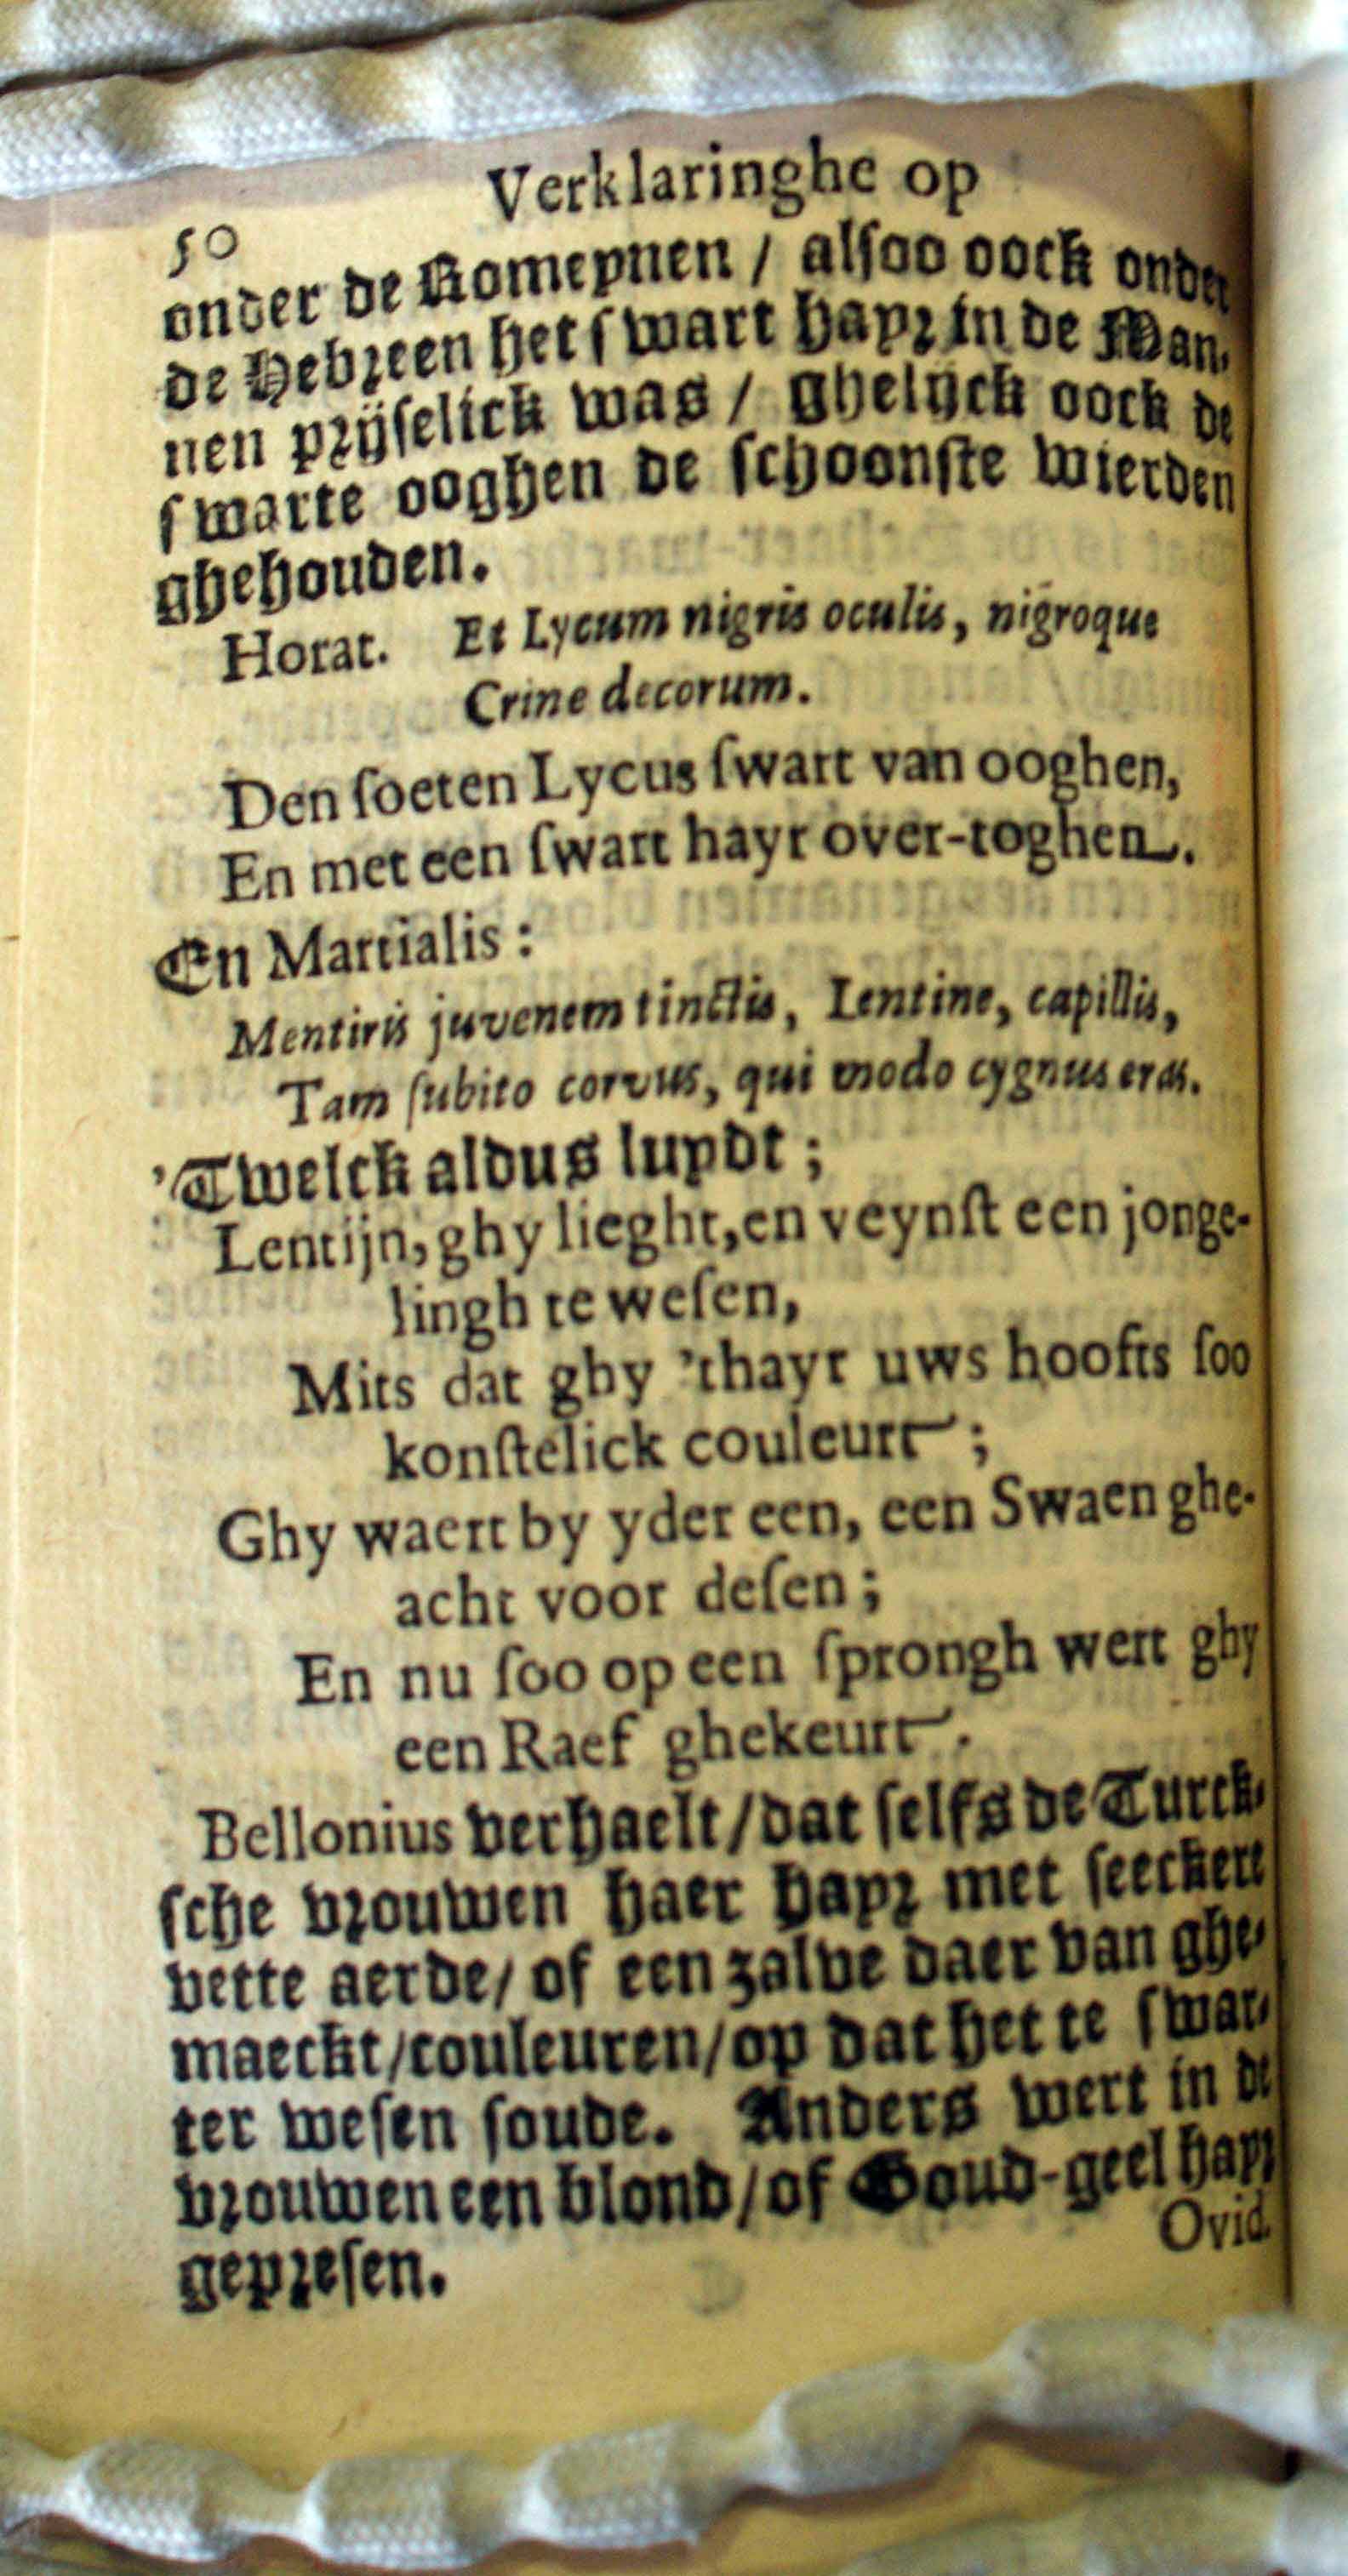 Verklaringhe op
50
onder de Romeynen / alsoo oock onder
de Hebreen het swart hayr in de Man-
nen prijselick was / ghelijck oock de
swarte ooghen de schoonste wierden
ghehouden.
Horat. Et Lycum nigris oculis, nigroque
Crine decorum.
Den soeten Lycus swart van ooghen,
En met een swart hayr over-toghen.
En Martialis :
Mentiris juvenem tinctis, Lentine, capillis,
Tam subito corvus, qui modo cygnus eras.
'Twelck aldus luydt ;
Lentijn, ghy lieght, en veynst een jonge-
lingh te wesen,
Mits dat ghy 'thayr uws hoofts soo
konstelick couleurt ;
Ghy waert by yder een, een Swaen ghe-
acht voor desen ;
En nu soo op een sprongh wert ghy
een Raef ghekeurt.
Bellonius verhaelt / dat selfs de Turck-
sche vrouwen haer hayr met seeckere
vette aerde / of een zalve daer van ghe-
maeckt / couleuren / op dat het te swar-
ter wesen soude. Anders wert in de
vrouwen een blond / of Goud-geel hayr
gepresen.
Ovid.